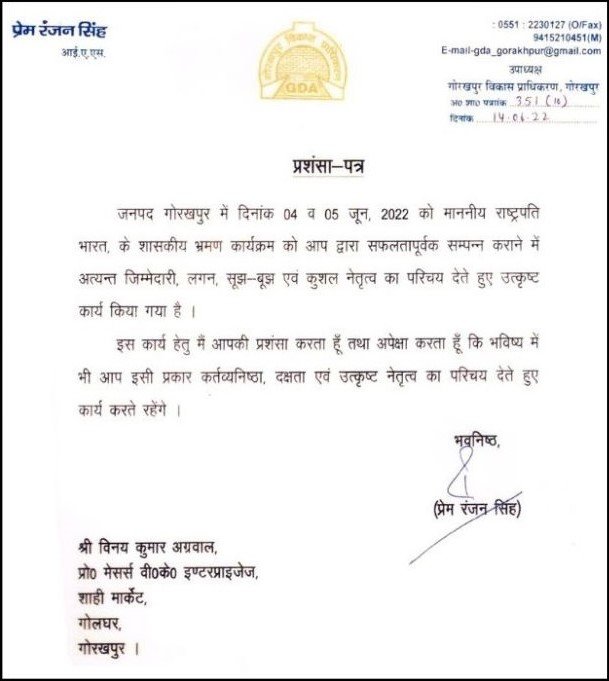 प्रेम रंजन सिंह
आई.ए.एस.
गोरखपुर विकास प्राधिकरण
GDA
: 0551 : 2230127 (O/Fax)
9415210451(M)
E-mail-gda_gorakhpur@gmail.com
उपाध्यक्ष
गोरखपुर विकास प्राधिकरण, गोरखपुर
अ० शा० पत्रांक 351 (10)
दिनांक 14.06.22
प्रशंसा–पत्र
जनपद गोरखपुर में दिनांक 04 व 05 जून, 2022 को माननीय राष्ट्रपति
भारत, के शासकीय भ्रमण कार्यक्रम को आप द्वारा सफलतापूर्वक सम्पन्न कराने में
अत्यन्त जिम्मेदारी, लगन, सूझ–बूझ एवं कुशल नेतृत्व का परिचय देते हुए उत्कृष्ट
कार्य किया गया है ।
इस कार्य हेतु मैं आपकी प्रशंसा करता हूँ तथा अपेक्षा करता हूँ कि भविष्य में
भी आप इसी प्रकार कर्तव्यनिष्ठा, दक्षता एवं उत्कृष्ट नेतृत्व का परिचय देते हुए
कार्य करते रहेंगे ।
भवनिष्ठ,
(प्रेम रंजन सिंह)
श्री विनय कुमार अग्रवाल,
प्रो० मेसर्स वी०के० इण्टरप्राइजेज,
शाही मार्केट,
गोलघर,
गोरखपुर ।